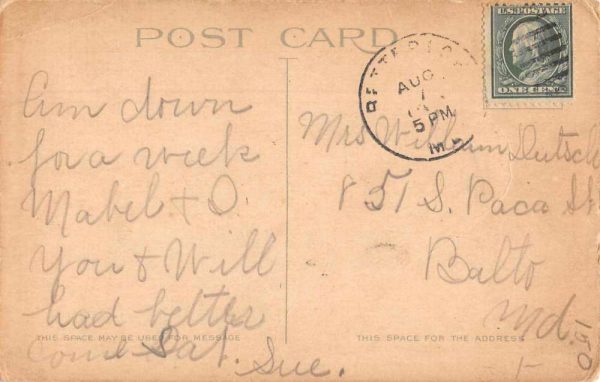 POST CARD
U.S. POSTAGE
ONE CENT
BETTERTON
AUG
1
5 PM
MD
Am down
for a week
Mabel + I.
You & Will
had better
come Sat. Sue.
Mrs William Dutsch
851 S. Paca St
Balto
Md.
THIS SPACE MAY BE USED FOR MESSAGE
THIS SPACE FOR THE ADDRESS
150